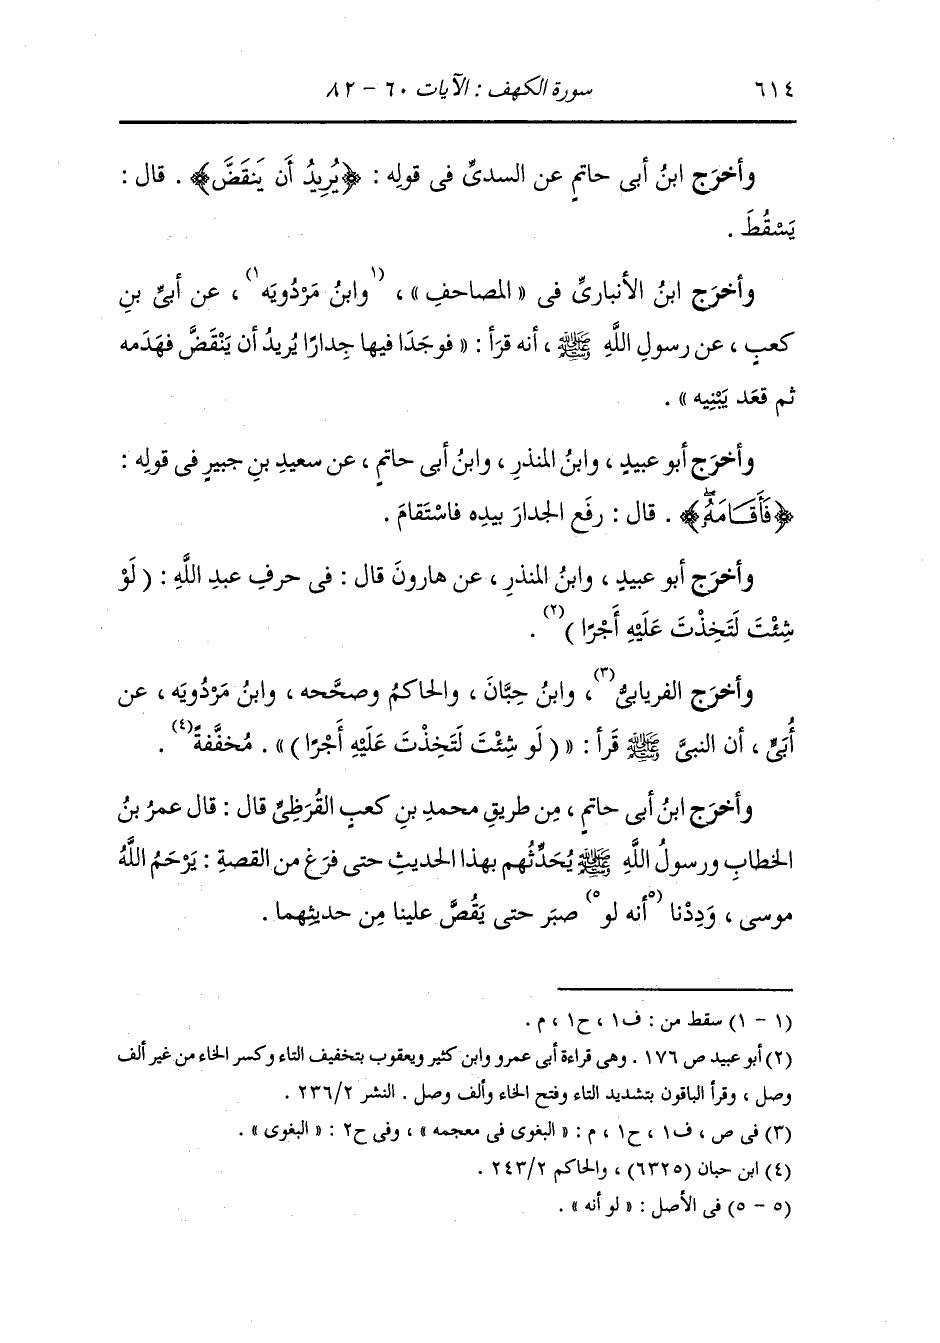 ٦١٤ سورة الكهف : الآيات ٦٠ - ٨٢
وأخرَج ابنُ أبى حاتمٍ عن السدىِّ فى قولِه : ﴿يُرِيدُ أَن يَنقَضَّ﴾ . قال :
يَسْقُطَ .
وأخرَج ابنُ الأنبارىِّ فى « المصاحفِ » ، (١)وابنُ مَرْدُويَه(١) ، عن أبىِّ بنِ
كعبٍ ، عن رسولِ اللَّهِ ﷺ ، أنه قرَأ : « فوجَدَا فيها جِدارًا يُريدُ أن يَنْقَضَّ فهَدَمه
ثم قعَد يَبْنِيه » .
وأخرَج أبو عبيدٍ ، وابنُ المنذرِ ، وابنُ أبى حاتمٍ ، عن سعيدِ بنِ جبيرٍ فى قولِه :
﴿فَأَقَامَهُۥۖ﴾ . قال : رفَع الجدارَ بيدِه فاسْتَقامَ .
وأخرَج أبو عبيدٍ ، وابنُ المنذرِ ، عن هارونَ قال : فى حرفِ عبدِ اللَّهِ : ( لَوْ
شِئْتَ لَتَخِذْتَ عَلَيْهِ أَجْرًا )(٢) .
وأخرَج الفريابىُّ(٣) ، وابنُ حِبَّانَ ، والحاكمُ وصحَّحه ، وابنُ مَرْدُويَه ، عن
أُبَىٍّ ، أن النبىَّ ﷺ قَرأ : « ( لَو شِئْتَ لَتَخِذْتَ عَلَيْهِ أَجْرًا ) » . مُخفَّفةً(٤) .
وأخرَج ابنُ أبى حاتمٍ ، مِن طريقِ محمدِ بنِ كعبٍ القُرَظِىِّ قال : قال عمرُ بنُ
الخطابِ ورسولُ اللَّهِ ﷺ يُحَدِّثُهم بهذا الحديثِ حتى فرَغ من القصةِ : يَرْحَمُ اللَّهُ
موسى ، وَدِدْنا (٥)أنه لو(٥) صبَر حتى يَقُصَّ علينا مِن حديثِهما .
(١ - ١) سقط من : ف١ ، ح١ ، م .
(٢) أبو عبيد ص ١٧٦ . وهى قراءة أبى عمرو وابن كثير ويعقوب بتخفيف التاء وكسر الخاء من غير ألف
وصل ، وقرأ الباقون بتشديد التاء وفتح الخاء وألف وصل . النشر ٢/ ٢٣٦ .
(٣) فى ص ، ف١ ، ح١ ، م : « البغوى فى معجمه » ، وفى ح٢ : « البغوى » .
(٤) ابن حبان (٦٣٢٥) ، والحاكم ٢/ ٢٤٣ .
(٥ - ٥) فى الأصل : « لو أنه » .